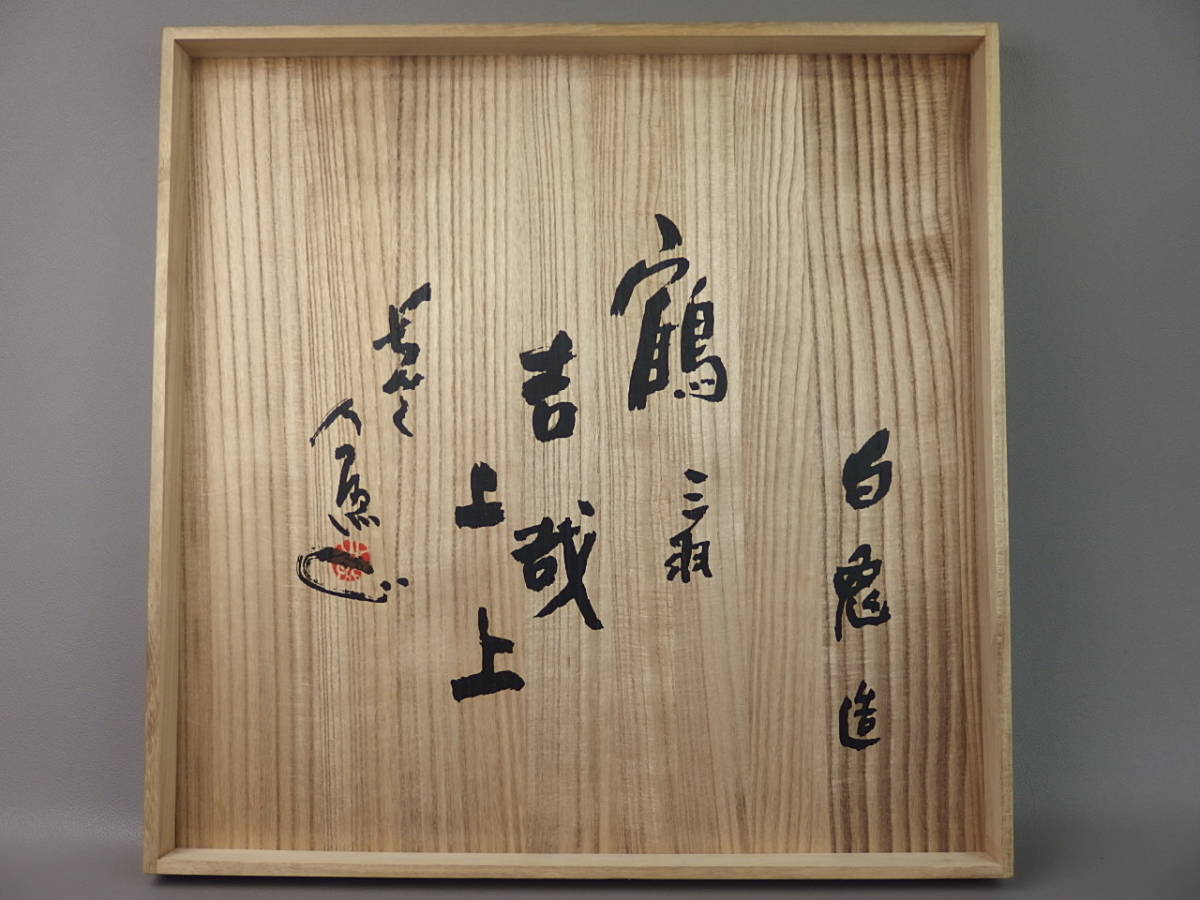 白兎造
鶴
三羽
吉哉
上上